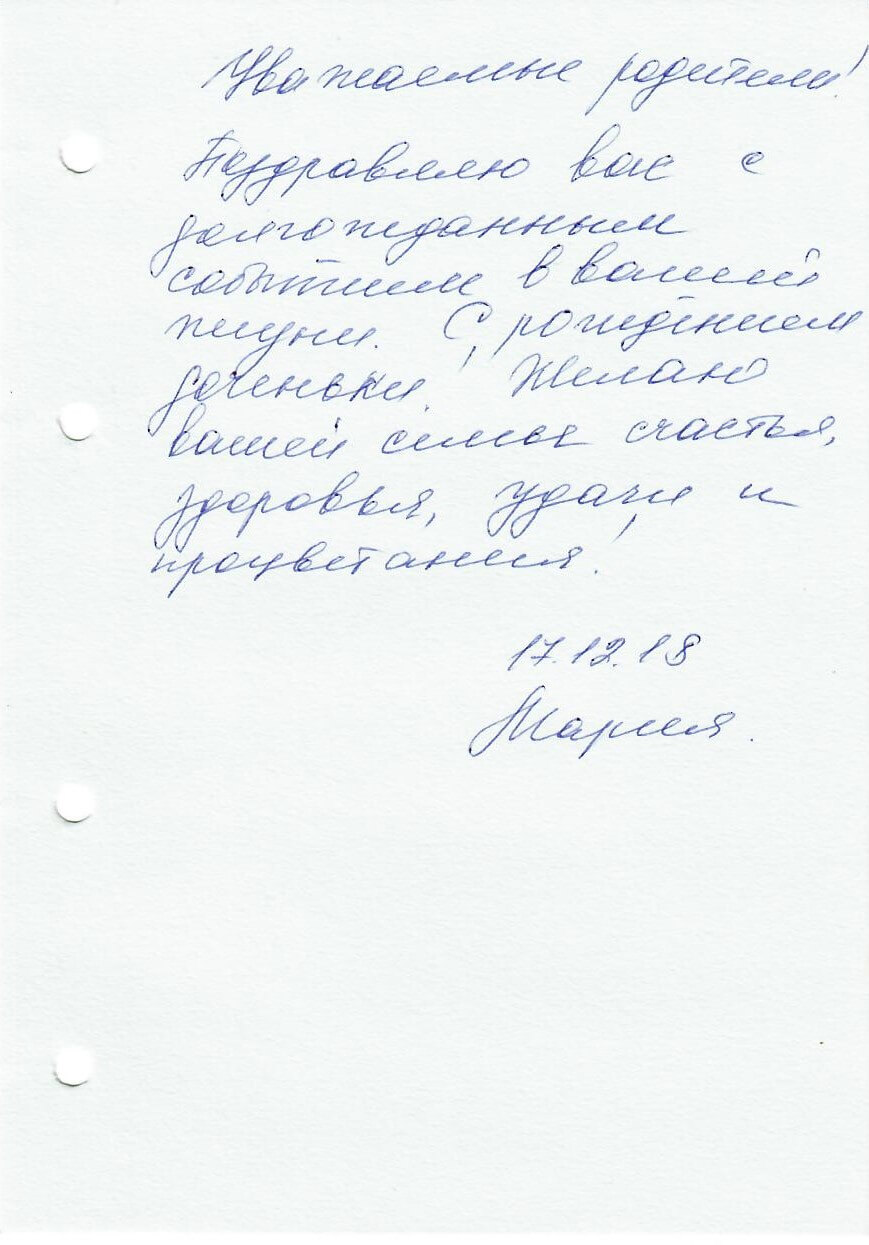 Уважаемые родители!
Поздравляю вас с
долгожданным
событием в вашей
жизни. С рождением
доченьки! Желаю
вашей семье счастья,
здоровья, удачи и
процветания!
17.12.18
Мария.